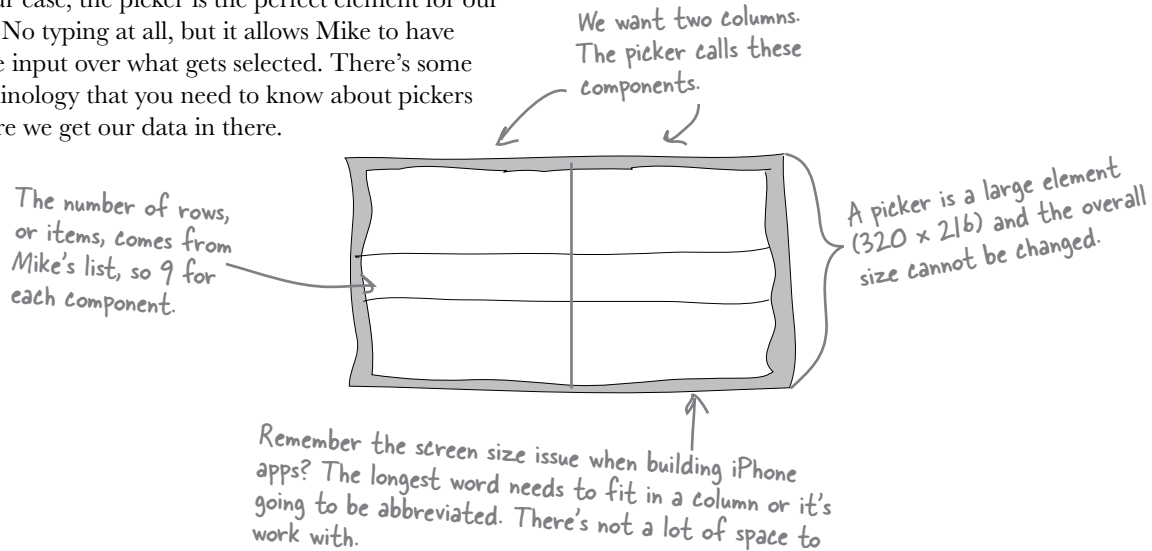 ur case, the picker is the perfect element for our
No typing at all, but it allows Mike to have
e input over what gets selected. There's some
inology that you need to know about pickers
re we get our data in there.
We want two columns.
The picker calls these
components.
The number of rows,
or items, comes from
Mike's list, so 9 for
each component.
A picker is a large element
(320 x 216) and the overall
size cannot be changed.
Remember the screen size issue when building iPhone
apps? The longest word needs to fit in a column or it's
going to be abbreviated. There's not a lot of space to
work with.